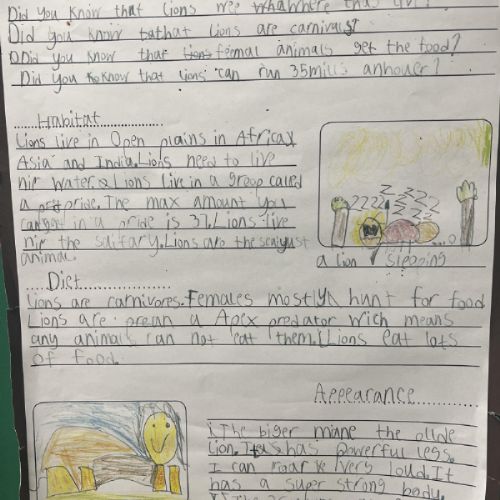 Did you know that Lions
Did you know tathat Lions are carnivals?
Did you know that Lions femal animals get the food?
Did you know that Lions can run 35mills anhouer?
Habitat
Lions live in Open plains in Africa,
Asia and India. Lions need to live
nir water. Lions live in a groop called
a pride. The max amount you
can get in a pride is 37. Lions live
nir the
animal.
a lion Sleeping
ZZZZZ
Diet
Lions are carnivores. Females mostly hunt for food
Lions are a Apex predator wich means
any animals can not eat them. Lions eat lots
of food.
Appearance
The biger miane the olude
Lion. has powerful legs.
I can roar very loud. It
has a super strong body.